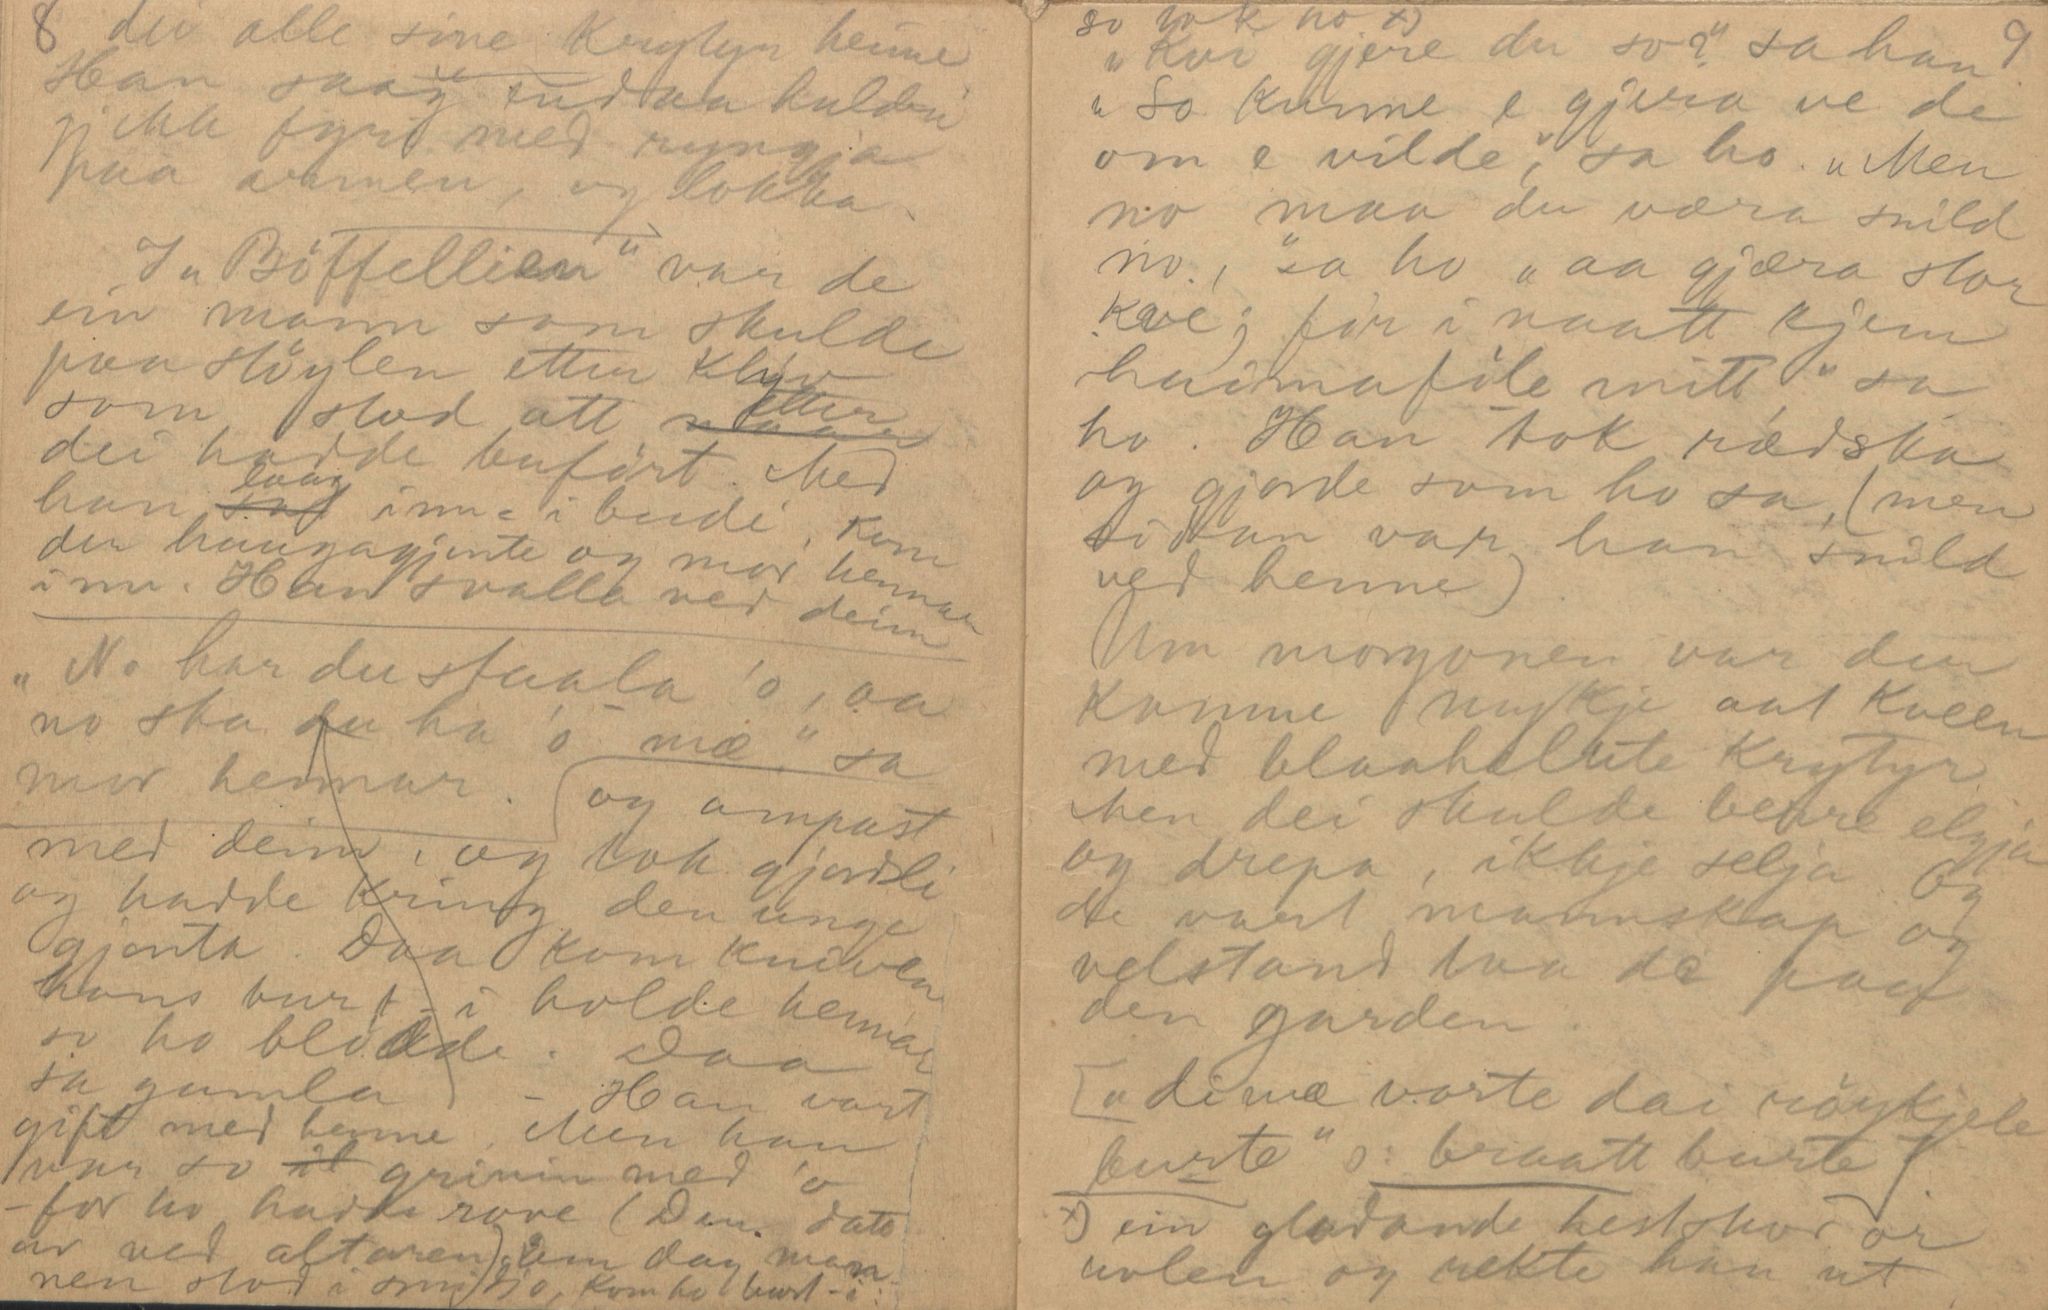 8 dei alle sine Krytyr heime
Han saag endaa huldri
gjekk fyri med ryngja
paa armen, og lokka.
I „Böffellien" var de
ein mann som skulde
paa stöylen etter Klyv
som stod att etter
dei hadde buført. Med
han laag inne i budi, kom
der haugagjente og mor hennar
inn. Han svalla ved deim
„No har du staala 'o, aa
no ska du ha 'o mæ" sa
mor hennar. og ampast
med deim, og tok gjordli
og hadde kring den unge
gjenta. Daa kom kniven
hans burt i holde hennar
so ho blödde. Daa
sa gamla – Han vart
gift med henne. Men han
var so grinin med 'o
– for ho hadde rove (Den datt
av ved altaren) Em dag man-
nen stod i smidjo, kom ho burt-i:
9
so tok ho x)
„Kvi gjere du so?" sa han
„So kunne e gjera ve de
om e vilde", sa ho. „Men
no maa du væra snild
no," sa ho „aa gjæra stor
kvé; för i naatt kjem
heimaföle mitt" sa
ho. Han tok rædska
og gjorde som ho sa, (men
sidan var han snild
ved henne)
Um morgonen var der
komne mykje aat kveen
med blaahelute Krytyr
Men dei skulde berre elgja
og drepa, ikkje selja. Og
de vart mannskap og
velstand taa de paa
den garden.
[„dimæ vorte dai röykjele
burte" ɔ: braatt burte]
x) ein gloðande hestsko or
aolen og rekte han ut